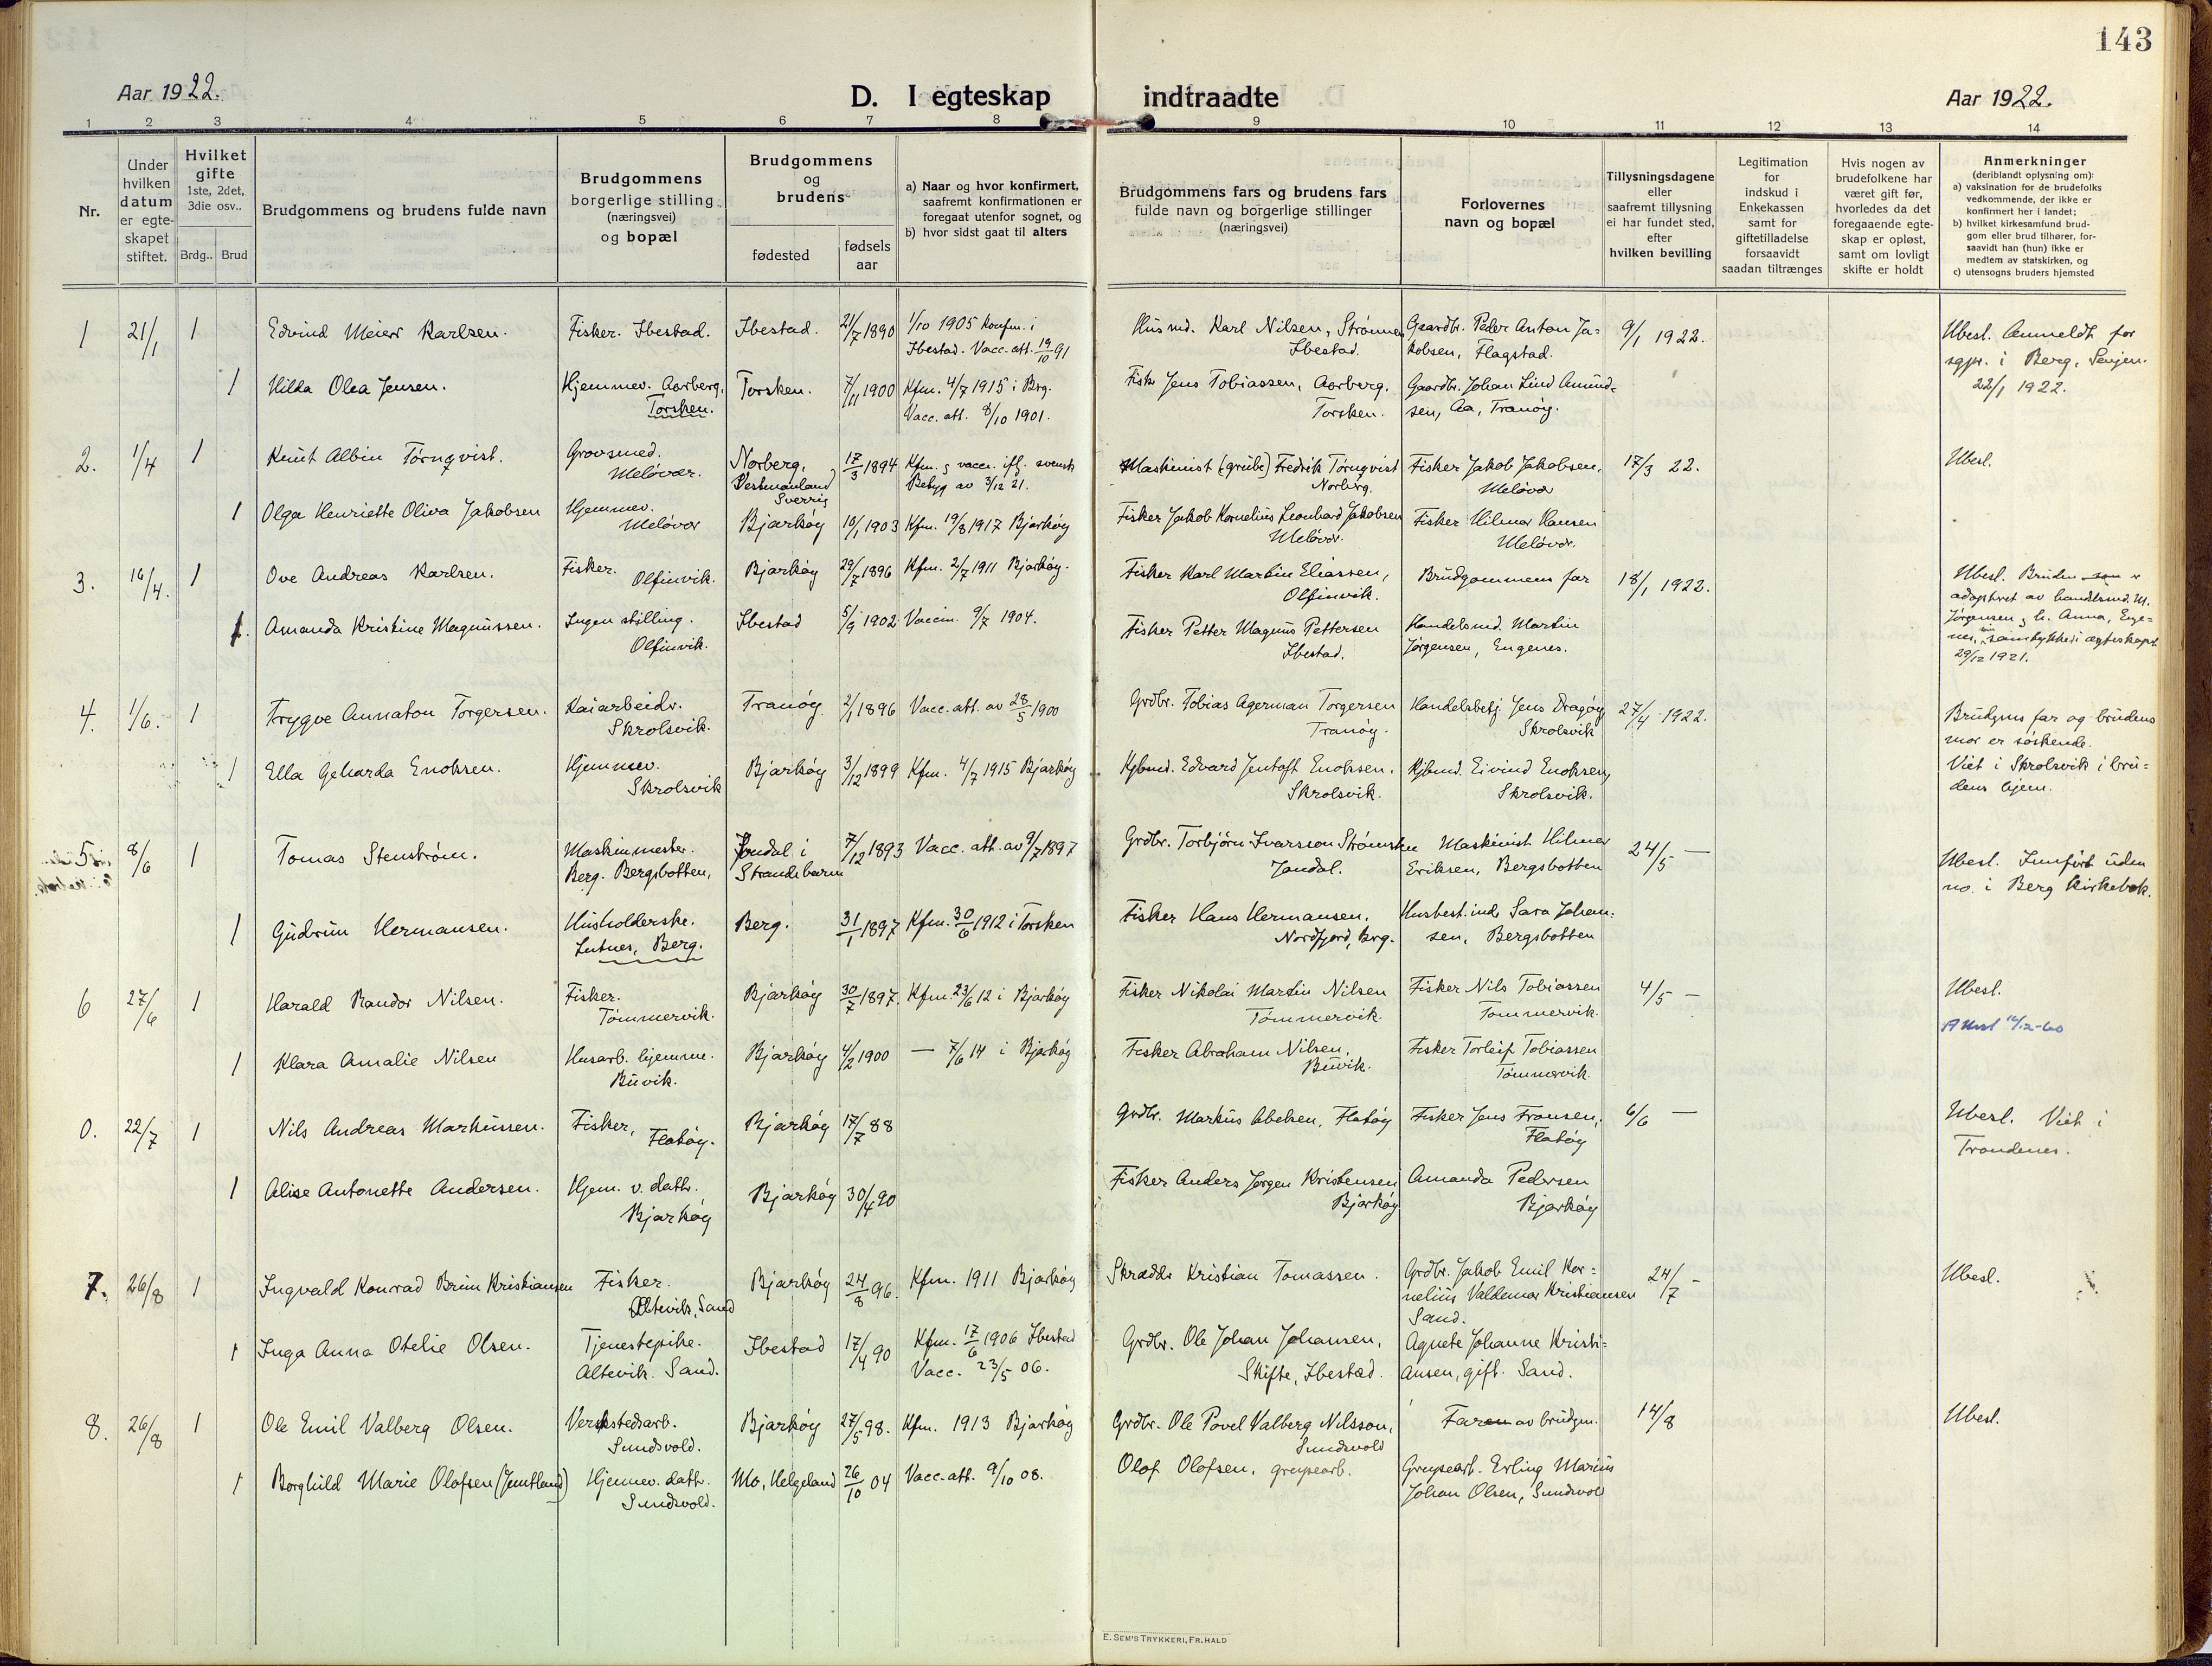 143
Aar 1922.
D. I egteskap indtraadte
Aar 1922.
1 2 3 4 5 6 7 8 9 10 11 12 13 14
Nr.
Under hvilken datum er egteskapet stiftet.
Hvilket gifte 1ste, 2det, 3die osv..
Brdg.. Brud
Brudgommens og brudens fulde navn
Brudgommens borgerlige stilling (næringsvei) og bopæl
Brudgommens og brudens
fødested
fødsels aar
a) Naar og hvor konfirmert, saafremt konfirmationen er foregaat utenfor sognet, og
b) hvor sidst gaat til alters
Brudgommens fars og brudens fars fulde navn og borgerlige stillinger (næringsvei)
Forlovernes navn og bopæl
Tillysningsdagene eller saafremt tillysning ei har fundet sted, efter hvilken bevilling
Legitimation for indskud i Enkekassen samt for giftetilladelse forsaavidt saadan tiltrænges
Hvis nogen av brudefolkene har været gift før, hvorledes da det foregaaende egteskap er opløst, samt om lovligt skifte er holdt
Anmerkninger (deriblandt oplysning om):
a) vaksination for de brudefolks vedkommende, der ikke er konfirmert her i landet;
b) hvilket kirkesamfund brudgom eller brud tilhører, forsaavidt han (hun) ikke er medlem av statskirken, og
c) utensogns bruders hjemsted
1 21/1 1 Edvind Meier Karlsen. Fisker. Ibestad. Ibestad. 21/7 1890 1/10 1905 Konfm. i Ibestad. Vacc. att. 19/10 91 Husmd. Karl Nilsen, Strømnes Ibestad. Gaardbr. Peder Anton Jakobsen, Flagstad. 9/1 1922. Ubesl. Anmeldt for sgpr. i Berg, Senjen. 22/1 1922.
1 Hilda Olea Jensen. Hjemmev. Aarberg, Torsken. Torsken. 7/11 1900 Kfm. 4/7 1915 i Brg. Vacc. att. 8/10 1901. Fisk. Jens Tobiassen, Aarberg, Torsken. Gaardbr. Johan Lind Amundsen, Aa, Tranøy.
2. 1/4 1 Knut Albin Törnqvist. Grovsmed. Meløvær. Norberg, Vestmanland Sverrig 17/3 1894 Kfm. & vacc. ifl. svensk Betyg av 3/12 21. Maskinist (grube) Fredrik Törnqvist Norberg. Fisker Jakob Jakobsen, Meløvær 17/3 22. Ubesl.
1 Olga Henriette Oliva Jakobsen Hjemmev. Meløvær Bjarkøy 10/1 1903 Kfm. 19/8 1917 Bjarkøy Fisker Jakob Kornelius Leonhard Jakobsen Meløvær. Fisker Hilmar Hansen Meløvær.
3. 16/4. 1 Ove Andreas Karlsen. Fisker. Olfinvik. Bjarkøy 29/7 1896 Kfm. 2/7 1911 Bjarkøy. Fisker Karl Martin Eliassen, Olfinvik. Brudgommens far 18/1 1922. Ubesl. Bruden er adoptert av handelsmd. M. Jørgensen & h. Anna, Engenes, samtykke i ægteskapet 29/12 1921.
1. Amanda Kristine Magnussen. Ingen stilling. Olfinvik. Ibestad 5/9 1902 Vaccin. 9/7 1904. Fisker Petter Magnus Pettersen Ibestad. Handelsmd. Martin Jørgensen, Engenes.
4. 1/6. 1 Trygve Annaton Torgersen. Kaiarbeider. Skrolsvik. Tranøy 2/1 1896 Vacc. att. av 28/5 1900 Grdbr. Tobias Agerman Torgersen Tranøy. Handelsbetj. Jens Dragøy Skrolsvik 27/4 1922. Brudgms far og brudens mor er søskende. Viet i Skrolsvik i brudens hjem.
1 Ella Geharda Enoksen. Hjemmev. Skrolsvik Bjarkøy 3/12 1899 Kfm. 4/7 1915 Bjarkøy Kjbmd. Edvard Jentoft Enoksen. Skrolsvik. Kjbmd. Eivind Enoksen, Skrolsvik.
5 8/6 1 Tomas Stenstrøm. Maskinmester. Berg. Bergsbotten. Jondal i Strandebarm 7/12 1893 Vacc. att. av 9/7 1897 Grdbr. Torbjørn Ivarsson Strømsteen Jondal. Maskinist Hilmar Eriksen, Bergsbotten 24/5 — Ubesl. Innført uden no. i Berg Kirkebok.
1 Gudrun Hermansen. Husholderske. Lutnes, Berg. Berg. 31/1 1897 Kfm. 30/6 1912 i Torsken Fisker Hans Hermansen. Nordfjord, Brg. Husbest.ind. Sara Johansen, Bergsbotten
6 27/6 1 Harald Randor Nilsen. Fisker. Tømmervik. Bjarkøy 30/7 1897. Kfm. 23/6 12 i Bjarkøy Fisker Nikolai Martin Nilsen Tømmervik. Fisker Nils Tobiassen Tømmervik. 4/5 — Ubesl.
1 Klara Amalie Nilsen Husarb. hjemme. Buvik. Bjarkøy 4/2 1900 — 7/6 14 i Bjarkøy Fisker Abraham Nilsen, Buvik. Fisker Torleif Tobiassen Tømmervik.
0. 22/7 1 Nils Andreas Markussen. Fisker, Flatøy. Bjarkøy 17/7 88 Grdbr. Markus Abelsen, Flatøy Fisker Jens Fransen, Flatøy 6/6 — Ubesl. Viet i Trondenes.
1 Alise Antonette Andersen. Hjem. v. datt. Bjarkøy Bjarkøy 30/4 90 Fisker Anders Jørgen Kristensen Bjarkøy Amanda Pedersen Bjarkøy
7. 26/8 1 Ingvald Konrad Brun Kristiansen Fisker. Altevik, Sand Bjarkøy 24/8 96. Kfm. 1911 Bjarkøy Skrædder Kristian Tomassen. Grdbr. Jakob Emil Kornelius Valdemar Kristiansen Sand. 24/7 - Ubesl.
1 Inga Anna Otelie Olsen. Tjenestepike. Altevik. Sand. Ibestad 17/4 90 Kfm. 17/6 1906 Ibestad Vacc. 23/5 06. Grdbr. Ole Johan Johansen, Skifte, Ibestad. Agnete Johanne Kristiansen, gift. Sand.
8. 26/8 1 Ole Emil Valberg Olsen. Verkstedsarb. Sundsvold. Bjarkøy 27/5 98. Kfm. 1913 Bjarkøy Grdbr. Ole Povel Valberg Nilsson, Sundsvold Faren av brudgm. 14/8 Ubesl.
1 Borghild Marie Olofsen (Jemtland) Hjemmev. datt. Sundsvold. Mo, Helgeland 26/10 04 Vacc. att. 9/10 08. Olof Olofsen, grupearb. Grupearb. Erling Marius Johan Olsen, Sundsvold
E. SEM'S TRYKKERI, FR. HALD